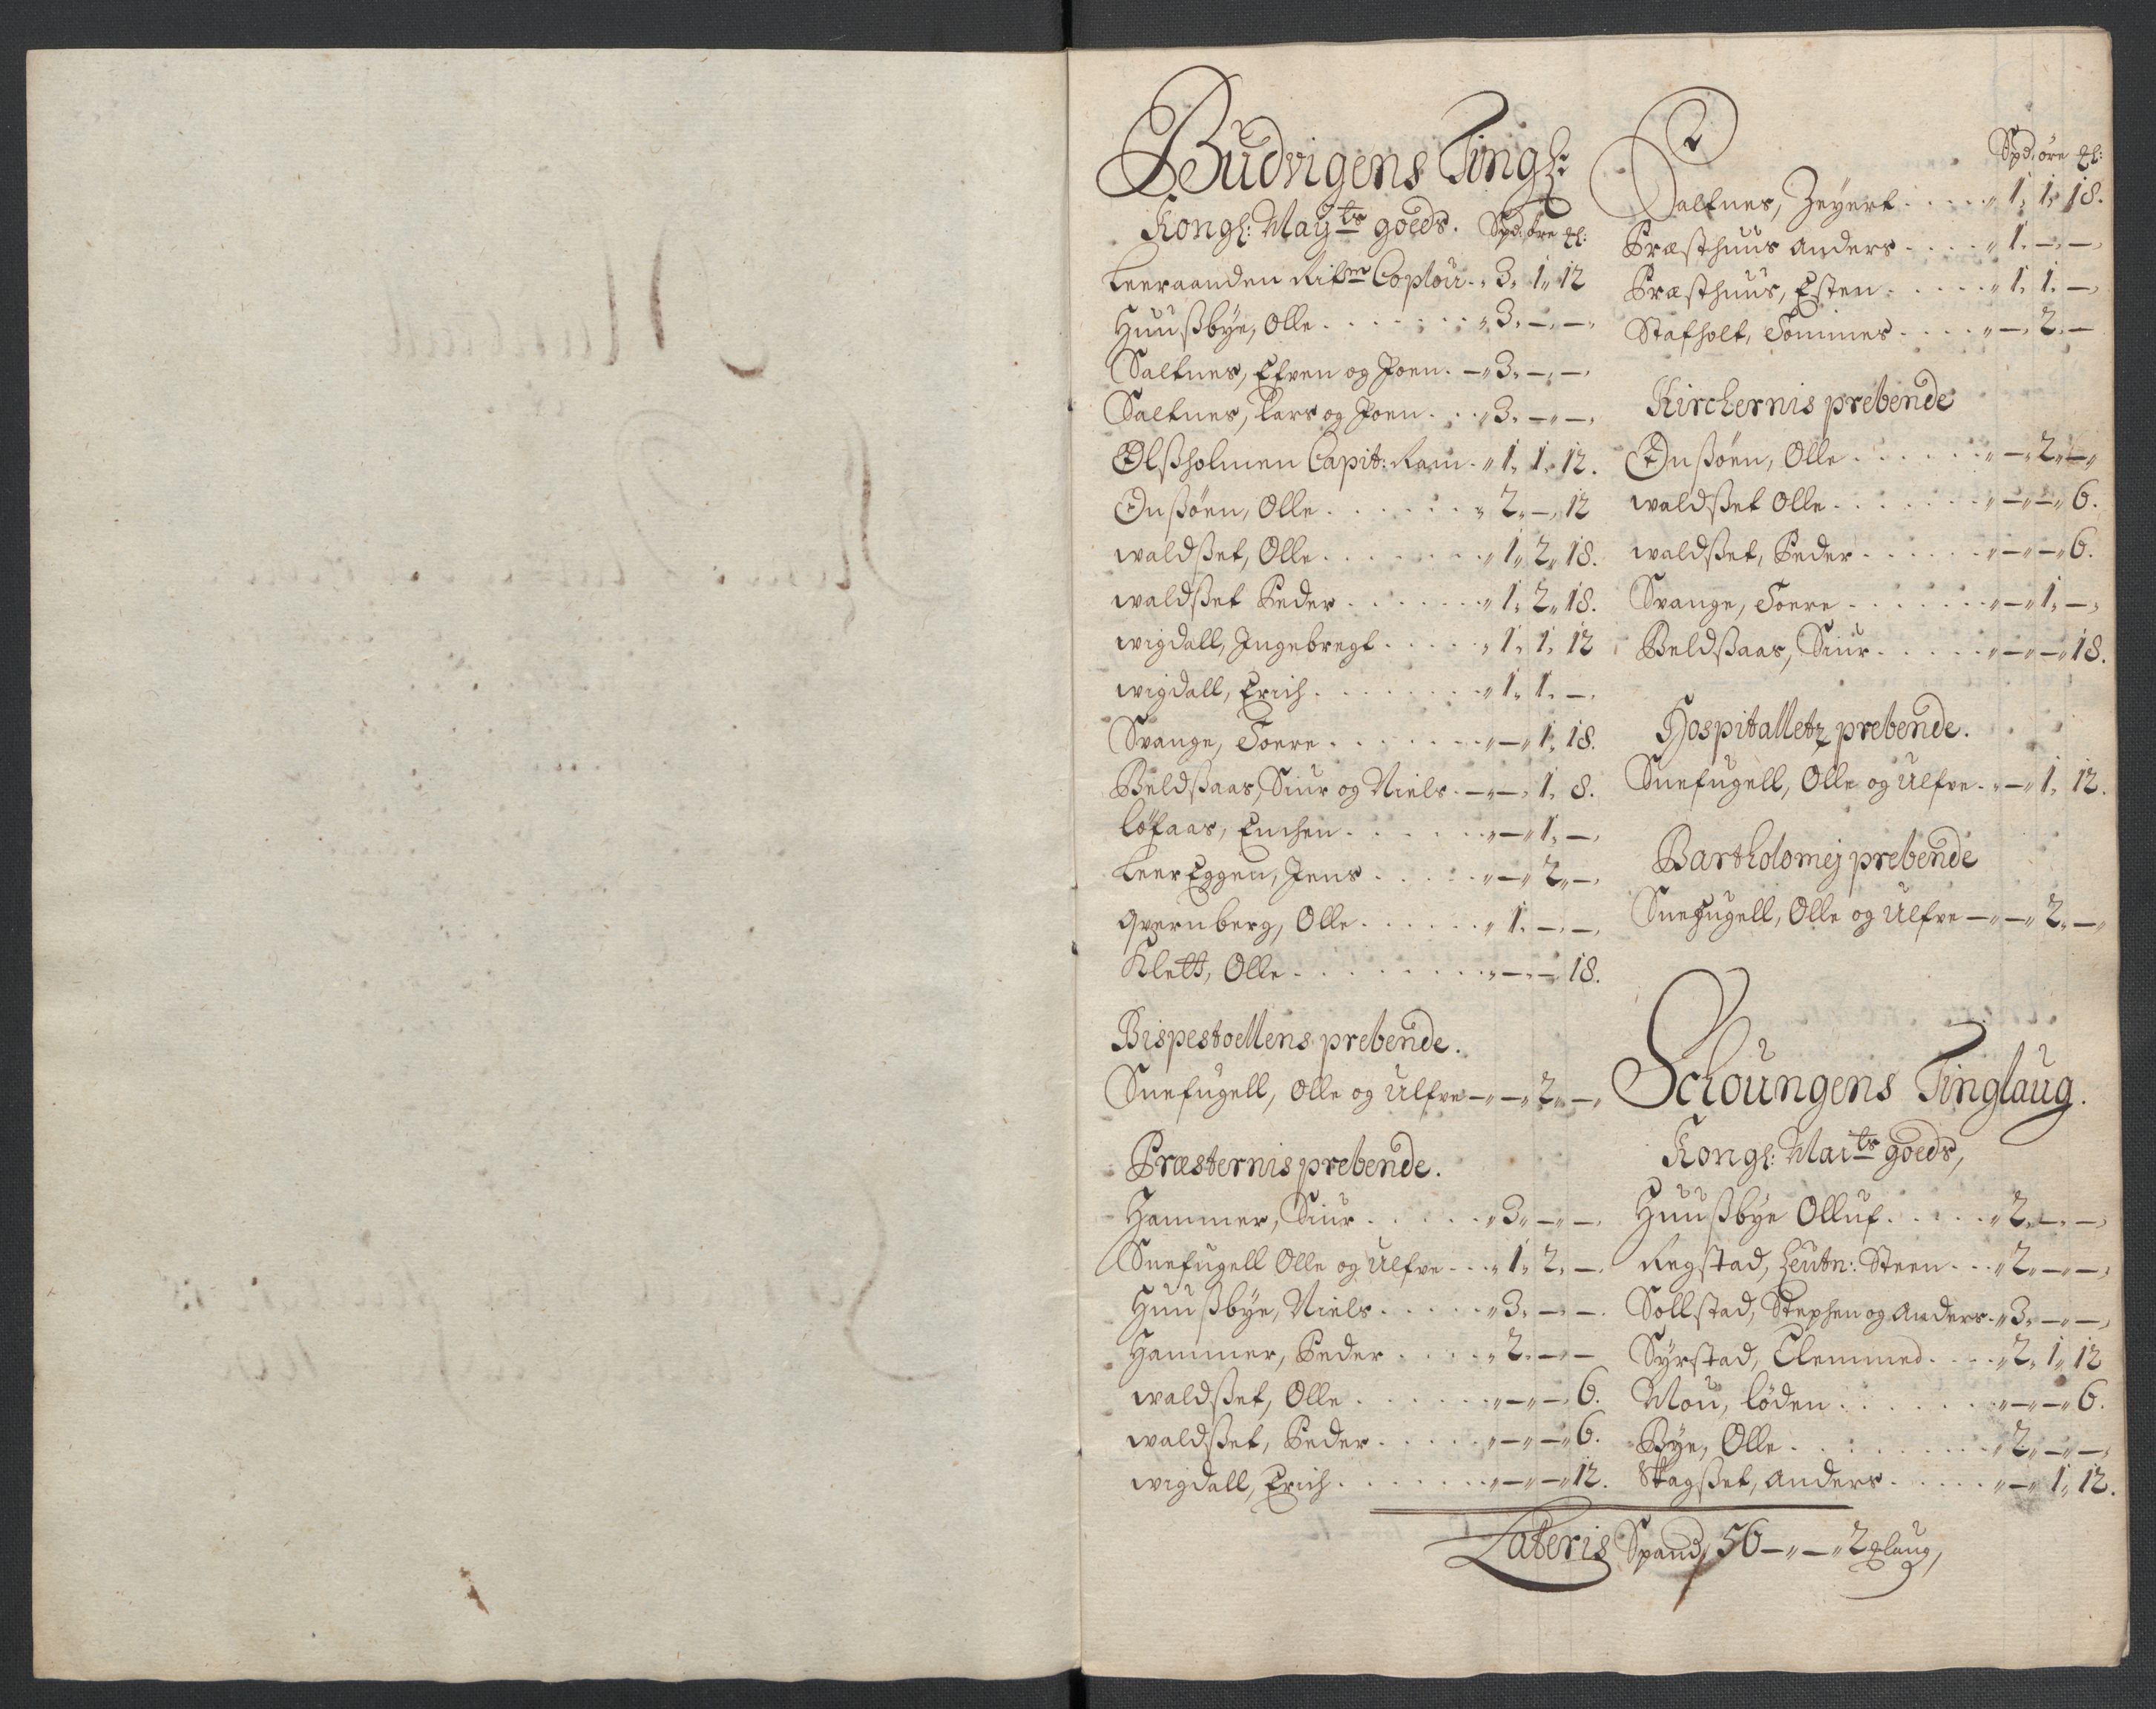 Budvigens Tingl:
Kongl: Mayts goeds. Spd: öre ql:
Leeraanden Ritm Coplou - 3. 1. 12
Huußbye, Olle - 3. - -
Saltnes, Efven og Joen - 3. - -
Saltnes, Lars og Joen - 3. - -
Ølßholmen Capit: Ram - 1. 1. 12.
Ønßöen, Olle - 2. - 12
waldßet, Olle - 1. 2. 18.
waldßet Peder - 1. 2. 18.
wigdall, Ingebregt - 1. 1. 12
wigdall, Erich - 1. 1. -
Svange, Toere - - 1. 18.
Beldßaas, Siur og Niels - - 1. 8.
löfaas, Enchen - - 1. -
Leer Eggen, Jens - - 2. -
qvernberg, Olle - 1. - -
Klett, Olle - - - 18.
Bispestoellens prebende.
Snefugell, Olle og Ulfve - - 2. -
Præsternis prebende.
Hammer, Siur - 3. - -
Snefugell Olle og Ulfve - 1. 2. -
Huußbye, Niels - 3. - -
Hammer, Peder - 2. - -
waldßet, Olle - - - 6.
waldßet, Peder - - - 6.
wigdall, Erich - - - 12.
2
Spd: öre ql:
Saltnes, Zeyert - 1. 1. 18.
Præsthuus Anders - 1. - -
Præsthuus, Esten - 1. 1. -
Stafholt, Tommes - - 2. -
Kirchernis prebende
Ønßöen, Olle - - 2. -
waldßet Olle - - - 6.
waldßet, Peder - - - 6.
Svange, Toere - - 1. -
Beldßaas, Siur - - - 18.
Hospitalletz prebende.
Snefugell, Olle og Ulfve - - 1. 12.
Bartholomej prebende
Snefugell, Olle og Ulfve - - 2. -
Schoungens Tinglaug.
Kongl: Maits goeds,
Huußbye Olluf - 2. - -
Regstad, Leutn: Steen - 2. - -
Sollstad, Stephen og Anders - 3. - -
Syrstad, Clemmed - 2. 1. 12
Mou, löden - - - 6.
Bye, Olle - 2. - -
Skagßet, Anders - - 1. 12.
Lateris Spand, 56 - - 2 qlaug,